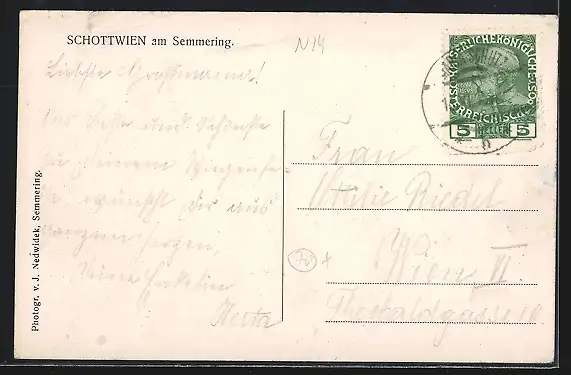 SCHOTTWIEN am Semmering.
N14
Liebste Großmama!
Das Beste und Schönste
zu Deinem Wiegenfe-
ste wünscht Dir aus
ganzem Herzen,
Deine Enkelin
Herta
Photogr. v. J. Nedwidek, Semmering.
KAISERLICHE KÖNIGLICHE
ÖSTERREICHISCHE
5 HELLER 5
Frau
Ottilie Riedel
Wien VI.
Theobaldgasse 10